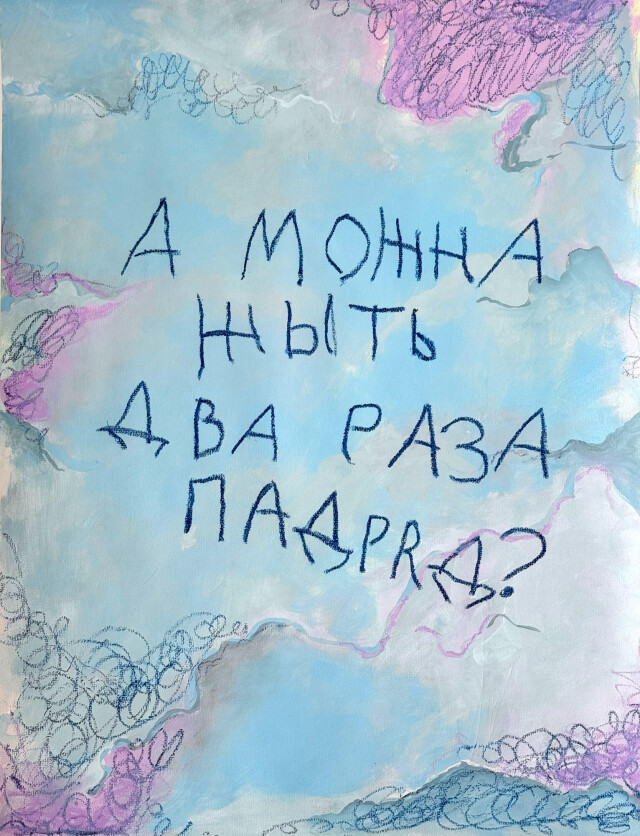 А МОЖНА
ЖЫТЬ
ДВА РАЗА
ПАДРЯД?